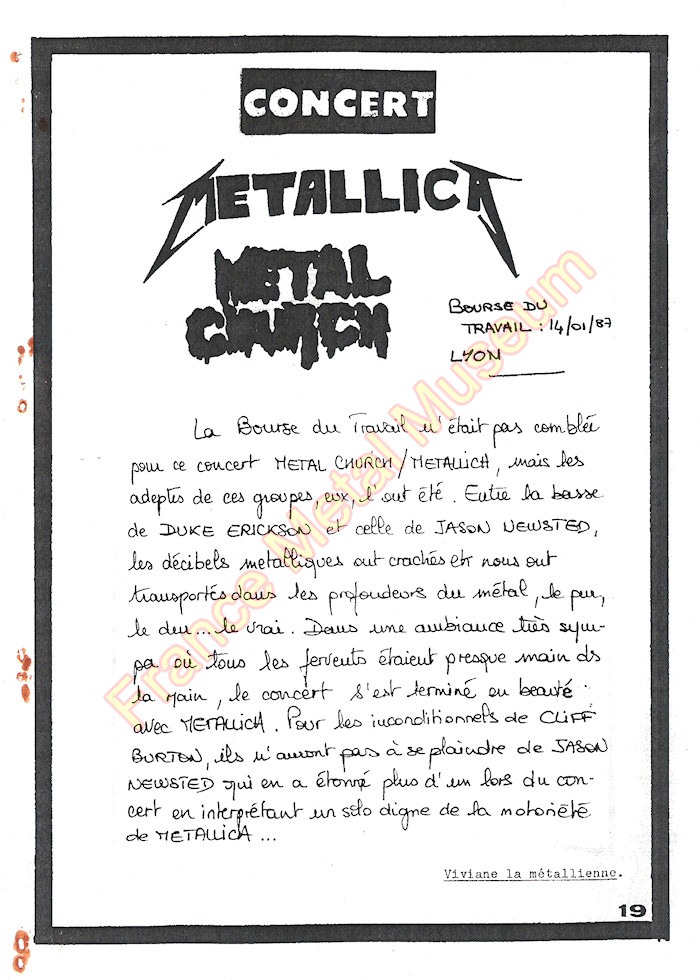 CONCERT
METALLICA
METAL
CHURCH
BOURSE DU
TRAVAIL : 14/01/87
LYON
La Bourse du Travail n'était pas comblée
pour ce concert METAL CHURCH/METALLICA, mais les
adeptes de ces groupes, eux, l'ont été. Entre la basse
de DUKE ERICKSON et celle de JASON NEWSTED,
les décibels metalliques ont crachés et nous ont
transportés dans les profondeurs du métal, le pur,
le dur... le vrai. Dans une ambiance très sym-
pa où tous les fervents étaient presque main ds
la main, le concert s'est terminé en beauté
avec METALLICA. Pour les inconditionnels de CLIFF
BURTON, ils n'auront pas à se plaindre de JASON
NEWSTED qui en a étonné plus d'un lors du con-
cert en interprétant un solo digne de la notoriété
de METALLICA ...
Viviane la métallienne.
19
France Metal Museum